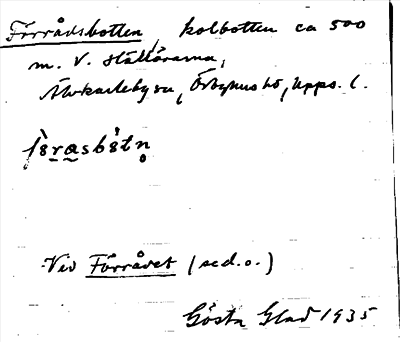 Förrådsbotten, kolbotten ca 500
m. V. Hållårarna,
Älvkarleby sn, Örbyhus hd, Upps. l.
Vid Förrådet (se d. o.)
Gösta Glad 1935